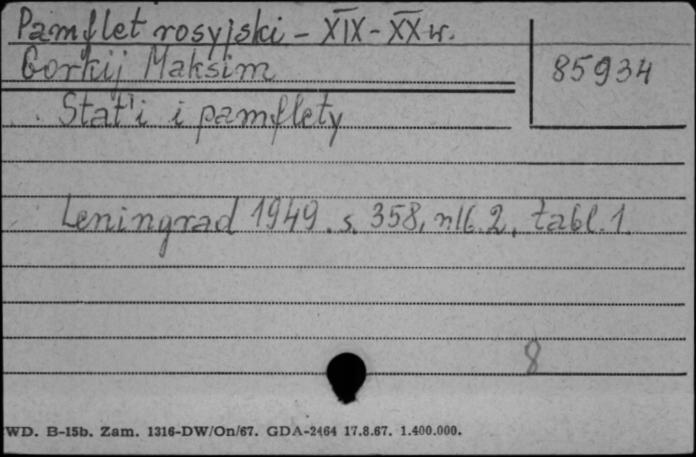 Pamflet rosyjski - XIX - XX w.
Gorkij Maksim
85934
Stat'i i pamflety
Leningrad 1949. s. 358, nlb. 2, tabl. 1.
8
WD. B-15b. Zam. 1316-DW/On/67. GDA-2464 17.8.67. 1.400.000.